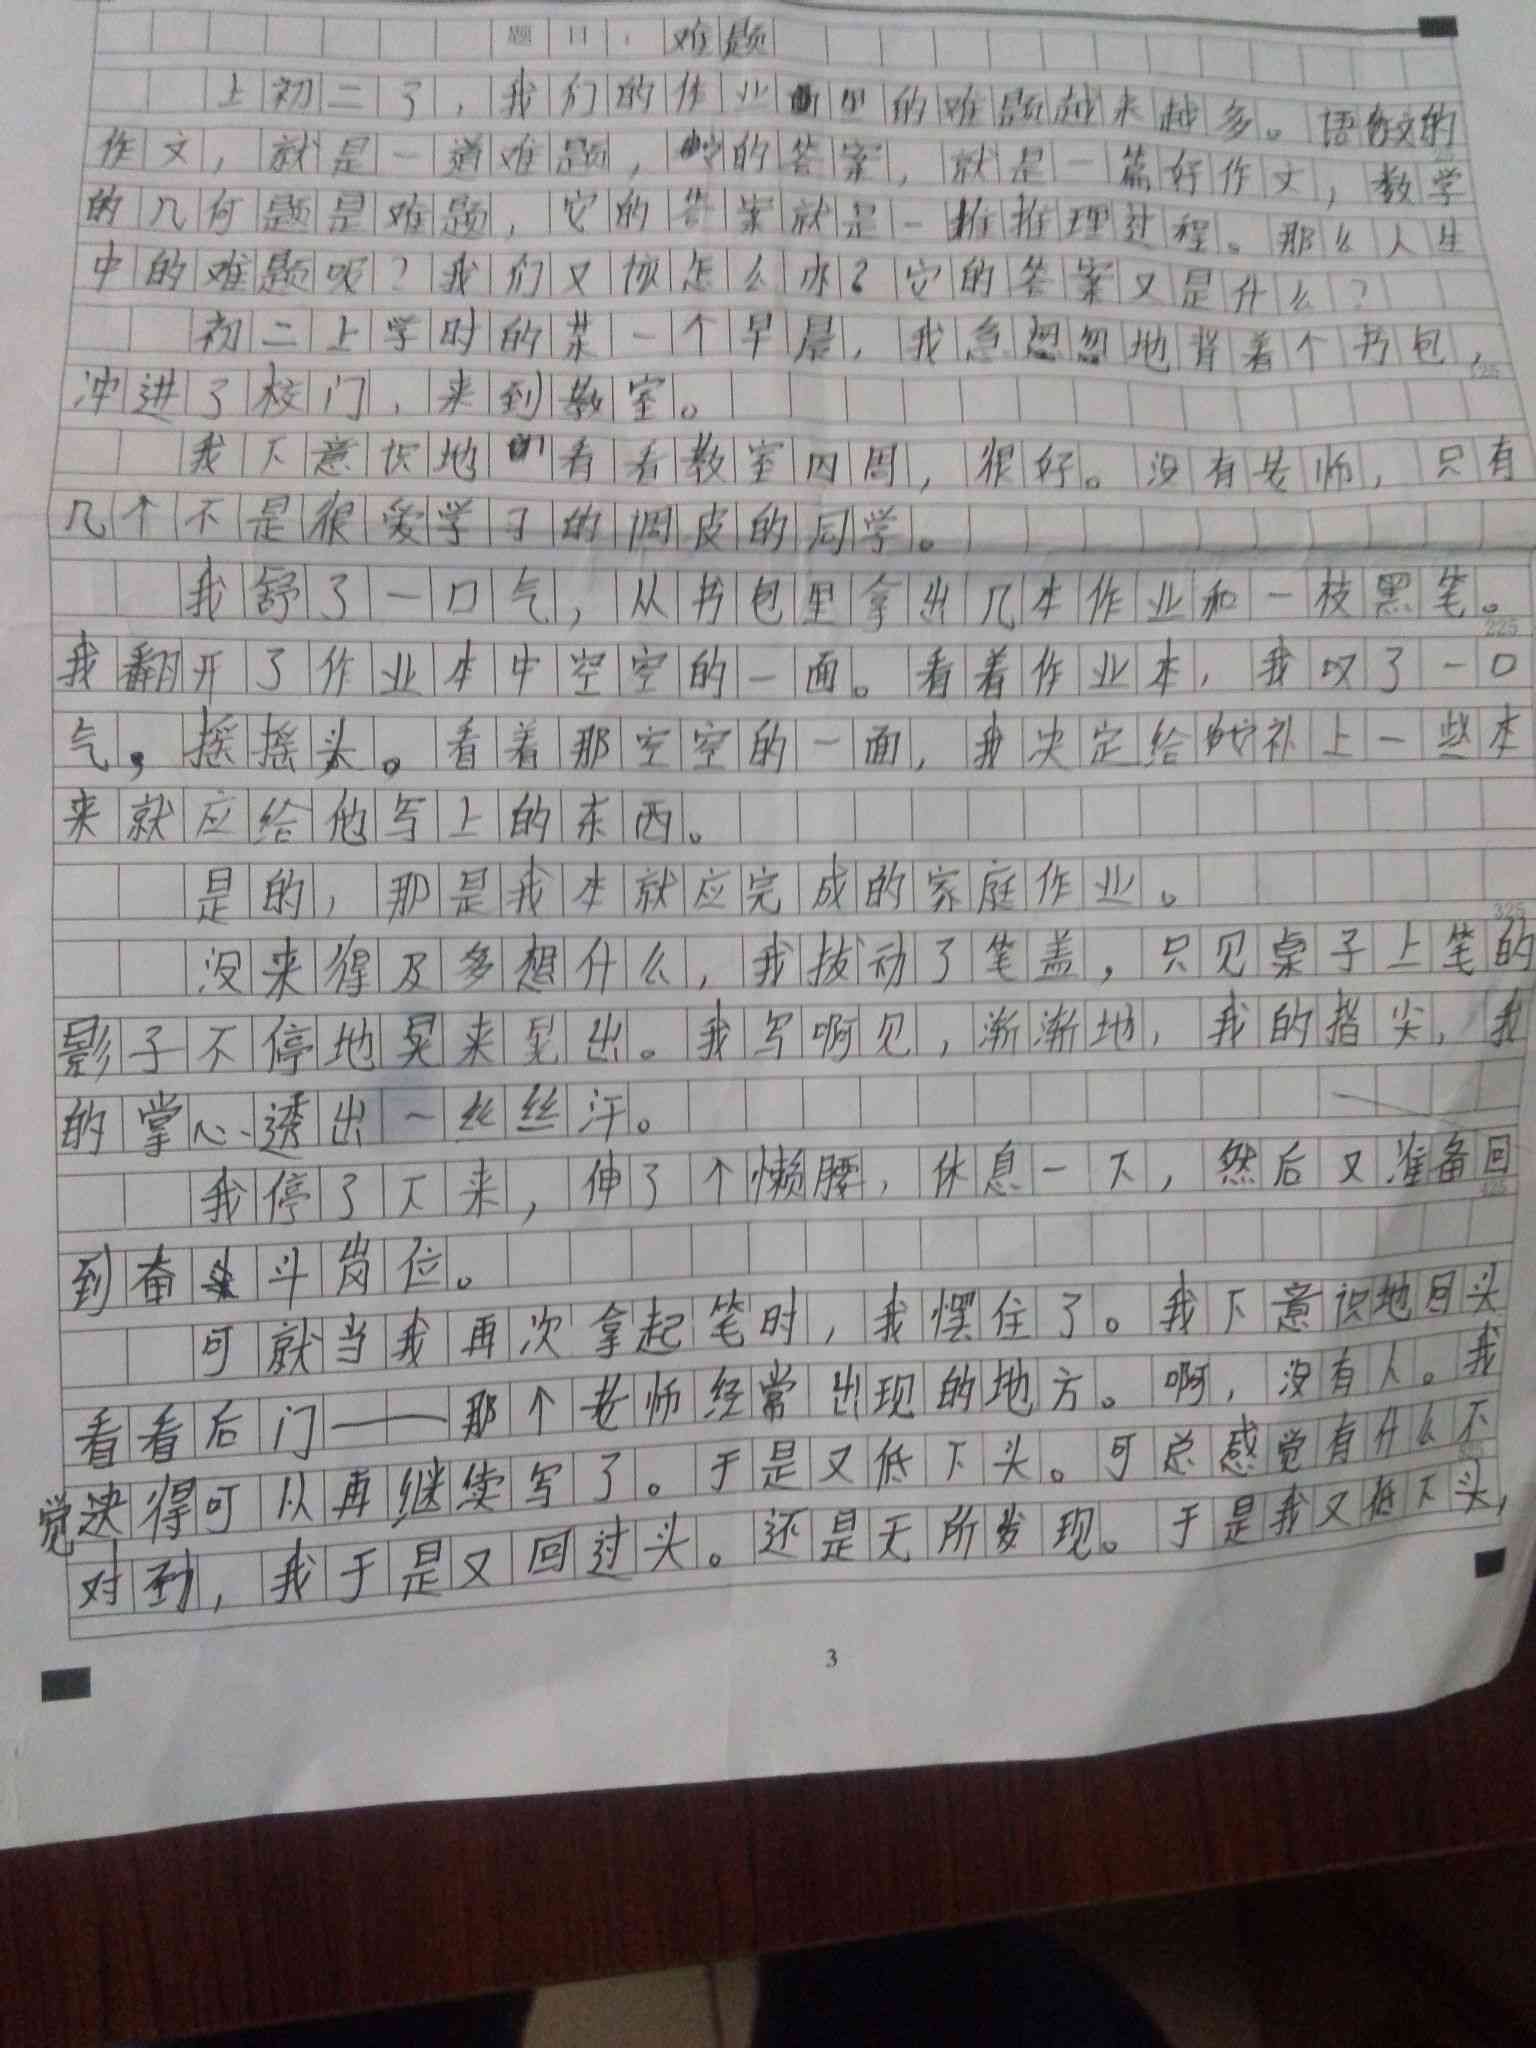 题目：难题
上初二了，我们的作业里的难题越来越多。语文的
作文，就是一道难题，它的答案，就是一篇好作文，数学
的几何题是难题，它的答案就是一推推理过程。那么人生
中的难题呢？我们又该怎么办？它的答案又是什么？
初二上学时的某一个早晨，我急忽忽地背着个书包，
125
冲进了校门，来到教室。
我下意识地看看教室四周，很好。没有老师，只有
几个不是很爱学习的调皮的同学。
我舒了一口气，从书包里拿出几本作业和一枝黑笔。
225
我翻开了作业本中空空的一面。看着作业本，我叹了一口
气，摇摇头。看着那空空的一面，我决定给它补上一些本
来就应给他写上的东西。
是的，那是我本就应完成的家庭作业。
325
没来得及多想什么，我拔动了笔盖，只见桌子上笔的
影子不停地晃来晃出。我写啊见，渐渐地，我的指尖，我
的掌心透出一丝丝汗。
我停了下来，伸了个懒腰，休息一下，然后又准备回
425
到奋斗岗位。
可就当我再次拿起笔时，我愣住了。我下意识地回头
看看后门——那个老师经常出现的地方。啊，没有人。我
觉得可以再继续写了。于是又低下头。可总感觉有什么不
对劲，我于是又回过头。还是无所发现。于是我又低下头，
3